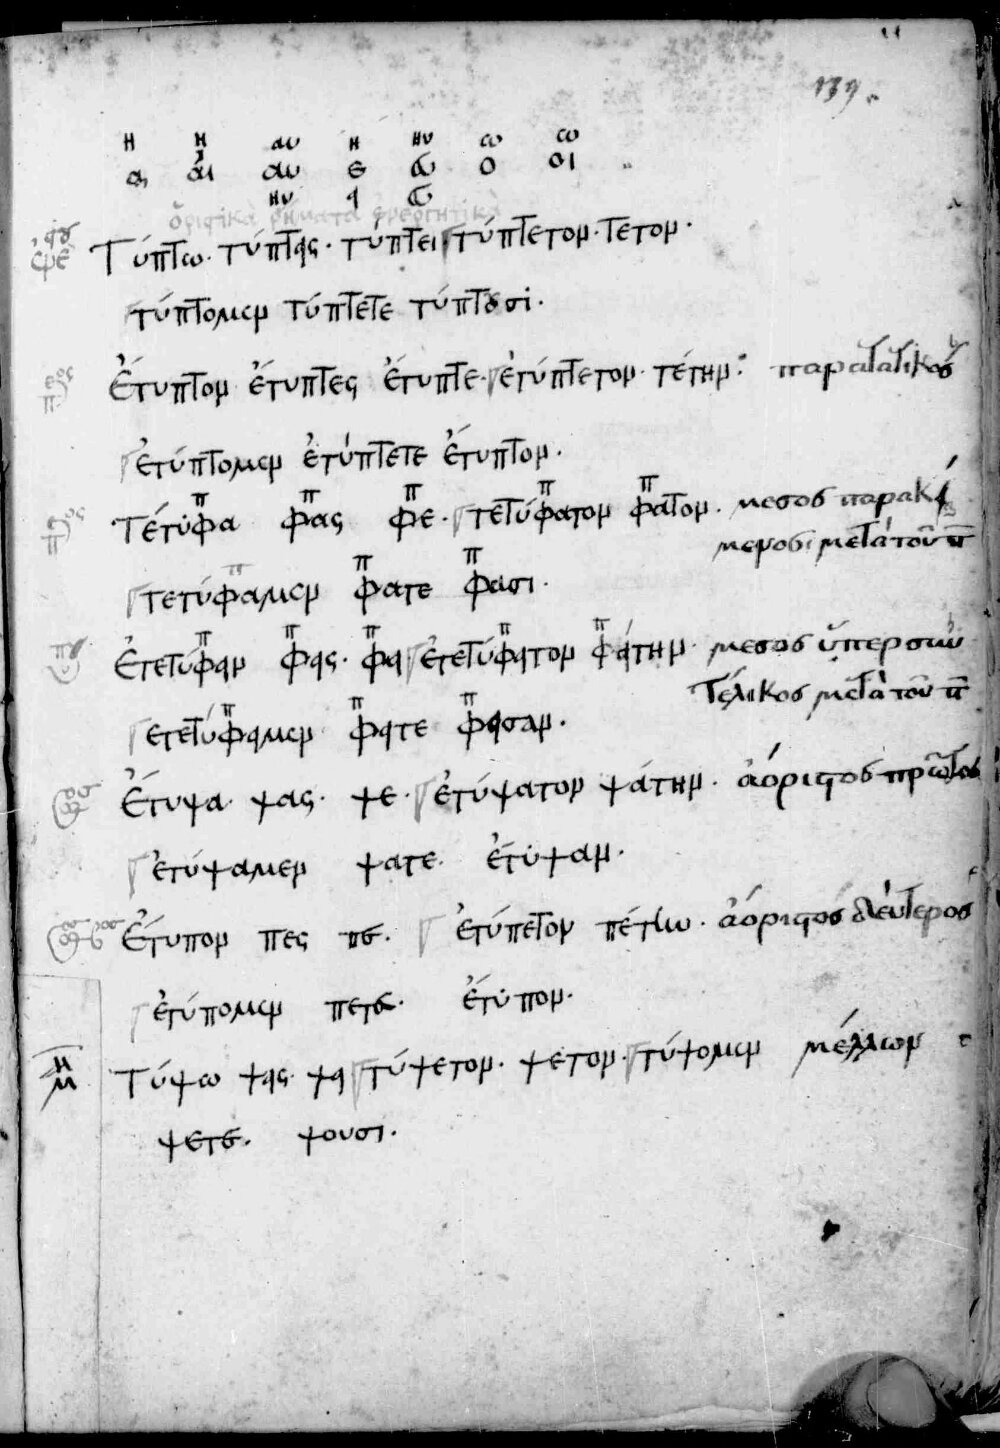 139.
η η αυ η ηυ ω ω
α αι αυ ε ευ ο οι
ηυ ει ευ
ὁριστικὰ ῥήματα ἐνεργητικὰ
Τύπτω· τύπτεις· τύπτει τύπτετον· τετον·
τύπτομεν τύπτετε τύπτουσι·
Ἔτυπτον ἔτυπτες ἔτυπτε· ἐτύπτετον· τέτην: παρατατικός
ἐτύπτομεν ἐτύπτετε ἔτυπτον·
Τέτυφα φας φε· τετύφατον φατον· μεσος παρακεί
π π π π π
μενος μετὰ τοῦ π
τετύφαμεν φατε φασι·
π π π
Ἐτετύφειν φεις· φει ἐτετύφειτον φείτην· μεσος ὑπερσυν
π π π π π
τέλικος μετὰ τοῦ π
ετετύφειμεν φειτε φεισαν·
π π π
Ἔτυψα· ψας· ψε· ἐτύψατον ψάτην· ἀόριστος πρῶτος
ἐτύψαμεν ψατε· ἔτυψαν·
Ἔτυπον πες πε· ἐτύπετον πέτην· ἀόριστος δεύτερος
ἐτύπομεν πετε· ἔτυπον·
Τύψω ψεις· ψει τύψετον· ψετον· τύψομεν μέλλων
ψετε· ψουσι·